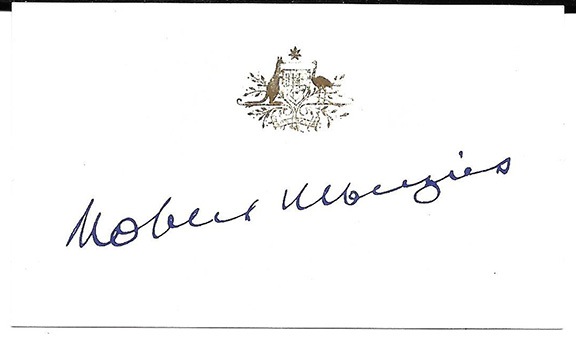 Robert Menzies